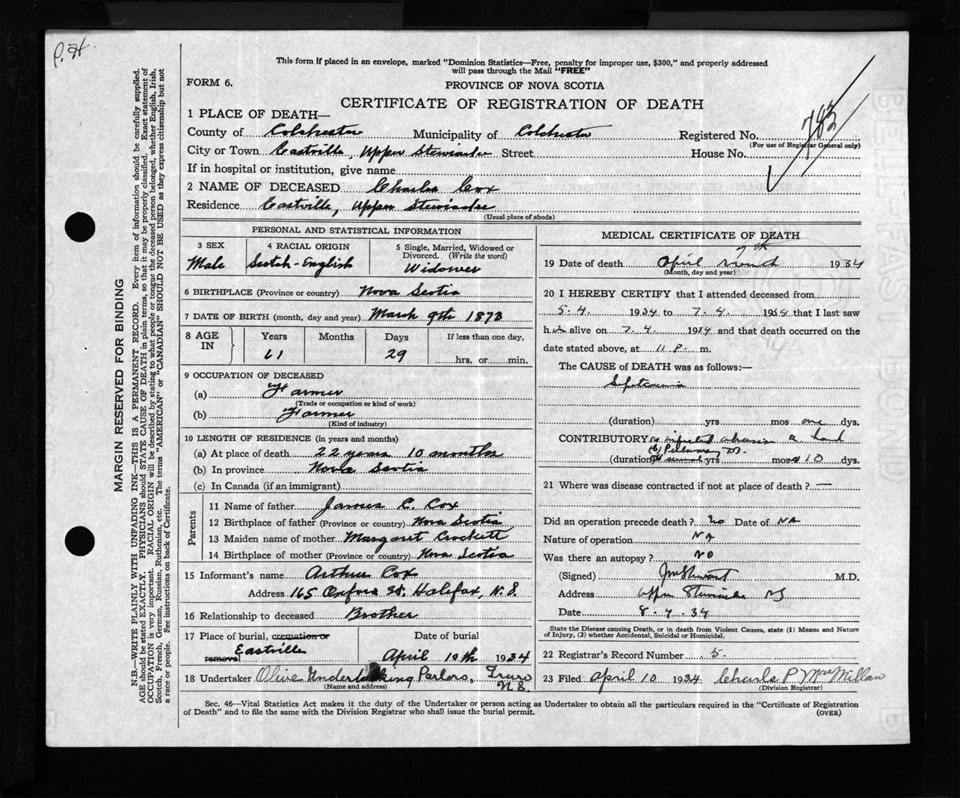 P.H.
This form if placed in an envelope, marked "Dominion Statistics—Free, penalty for improper use, $300," and properly addressed
will pass through the Mail "FREE"
FORM 6.
PROVINCE OF NOVA SCOTIA
CERTIFICATE OF REGISTRATION OF DEATH
1 PLACE OF DEATH—
County of Colchester Municipality of Colchester Registered No. 783
(For use of Registrar General only)
City or Town Eastville, Upper Stewiacke Street House No.
If in hospital or institution, give name
2 NAME OF DECEASED Charles Cox
Residence Eastville, Upper Stewiacke
(Usual place of abode)
PERSONAL AND STATISTICAL INFORMATION
3 SEX 4 RACIAL ORIGIN 5 Single, Married, Widowed or Divorced. (Write the word)
Male Scotch-English Widower
6 BIRTHPLACE (Province or country) Nova Scotia
7 DATE OF BIRTH (month, day and year) March 9th 1873
8 AGE IN Years Months Days If less than one day,
61 29 hrs. or min.
9 OCCUPATION OF DECEASED
(a) Farmer
(Trade or occupation or kind of work)
(b) Farmer
(Kind of industry)
10 LENGTH OF RESIDENCE (in years and months)
(a) At place of death 22 years 10 months
(b) In province Nova Scotia
(c) In Canada (if an immigrant)
Parents
11 Name of father James C. Cox
12 Birthplace of father (Province or country) Nova Scotia
13 Maiden name of mother Margaret Crockett
14 Birthplace of mother (Province or country) Nova Scotia
15 Informant's name Arthur Cox
Address 165 Oxford St. Halifax, N.S.
16 Relationship to deceased Brother
17 Place of burial, cremation or removal Eastville Date of burial April 10th 1934
18 Undertaker Olive Undertaking Parlors, Truro N.S.
(Name and address)
MEDICAL CERTIFICATE OF DEATH
7th
19 Date of death April 1934
(Month, day and year)
20 I HEREBY CERTIFY that I attended deceased from
5.4. 1934 to 7.4. 1934 that I last saw
him alive on 7.4. 1934 and that death occurred on the
date stated above, at 11 P. m.
The CAUSE of DEATH was as follows:—
Septicemia
(duration) yrs mos one dys.
CONTRIBUTORY (a) infected abrasion of hand
(b) Pulmonary TB.
(duration) several yrs mos a 10 dys.
21 Where was disease contracted if not at place of death? —
Did an operation precede death? no Date of NA
Nature of operation NA
Was there an autopsy? NO
(Signed) M.D.
Address Upper Stewiacke NS
Date 8.4.34
State the Disease causing Death, or in death from Violent Causes, state (1) Means and Nature
of Injury, (2) whether Accidental, Suicidal or Homicidal.
22 Registrar's Record Number 5.
23 Filed April 10 1934 Charles P. MacMillan
(Division Registrar)
Sec. 46—Vital Statistics Act makes it the duty of the Undertaker or person acting as Undertaker to obtain all the particulars required in the "Certificate of Registration
of Death" and to file the same with the Division Registrar who shall issue the burial permit. (OVER)
MARGIN RESERVED FOR BINDING
N.B.—WRITE PLAINLY WITH UNFADING INK—THIS IS A PERMANENT RECORD. Every item of information should be carefully supplied.
AGE should be stated EXACTLY. PHYSICIANS should STATE CAUSE OF DEATH in plain terms, so that it may be properly classified. Exact statement of
OCCUPATION is very important. RACIAL ORIGIN will be described by stating to what people or tongue the deceased person belonged, whether English, Irish,
Scotch, French, German, Russian, Ruthenian, etc. The terms "AMERICAN" or "CANADIAN" SHOULD NOT BE USED as they express citizenship but not
a race or people. See instructions on back of Certificate.